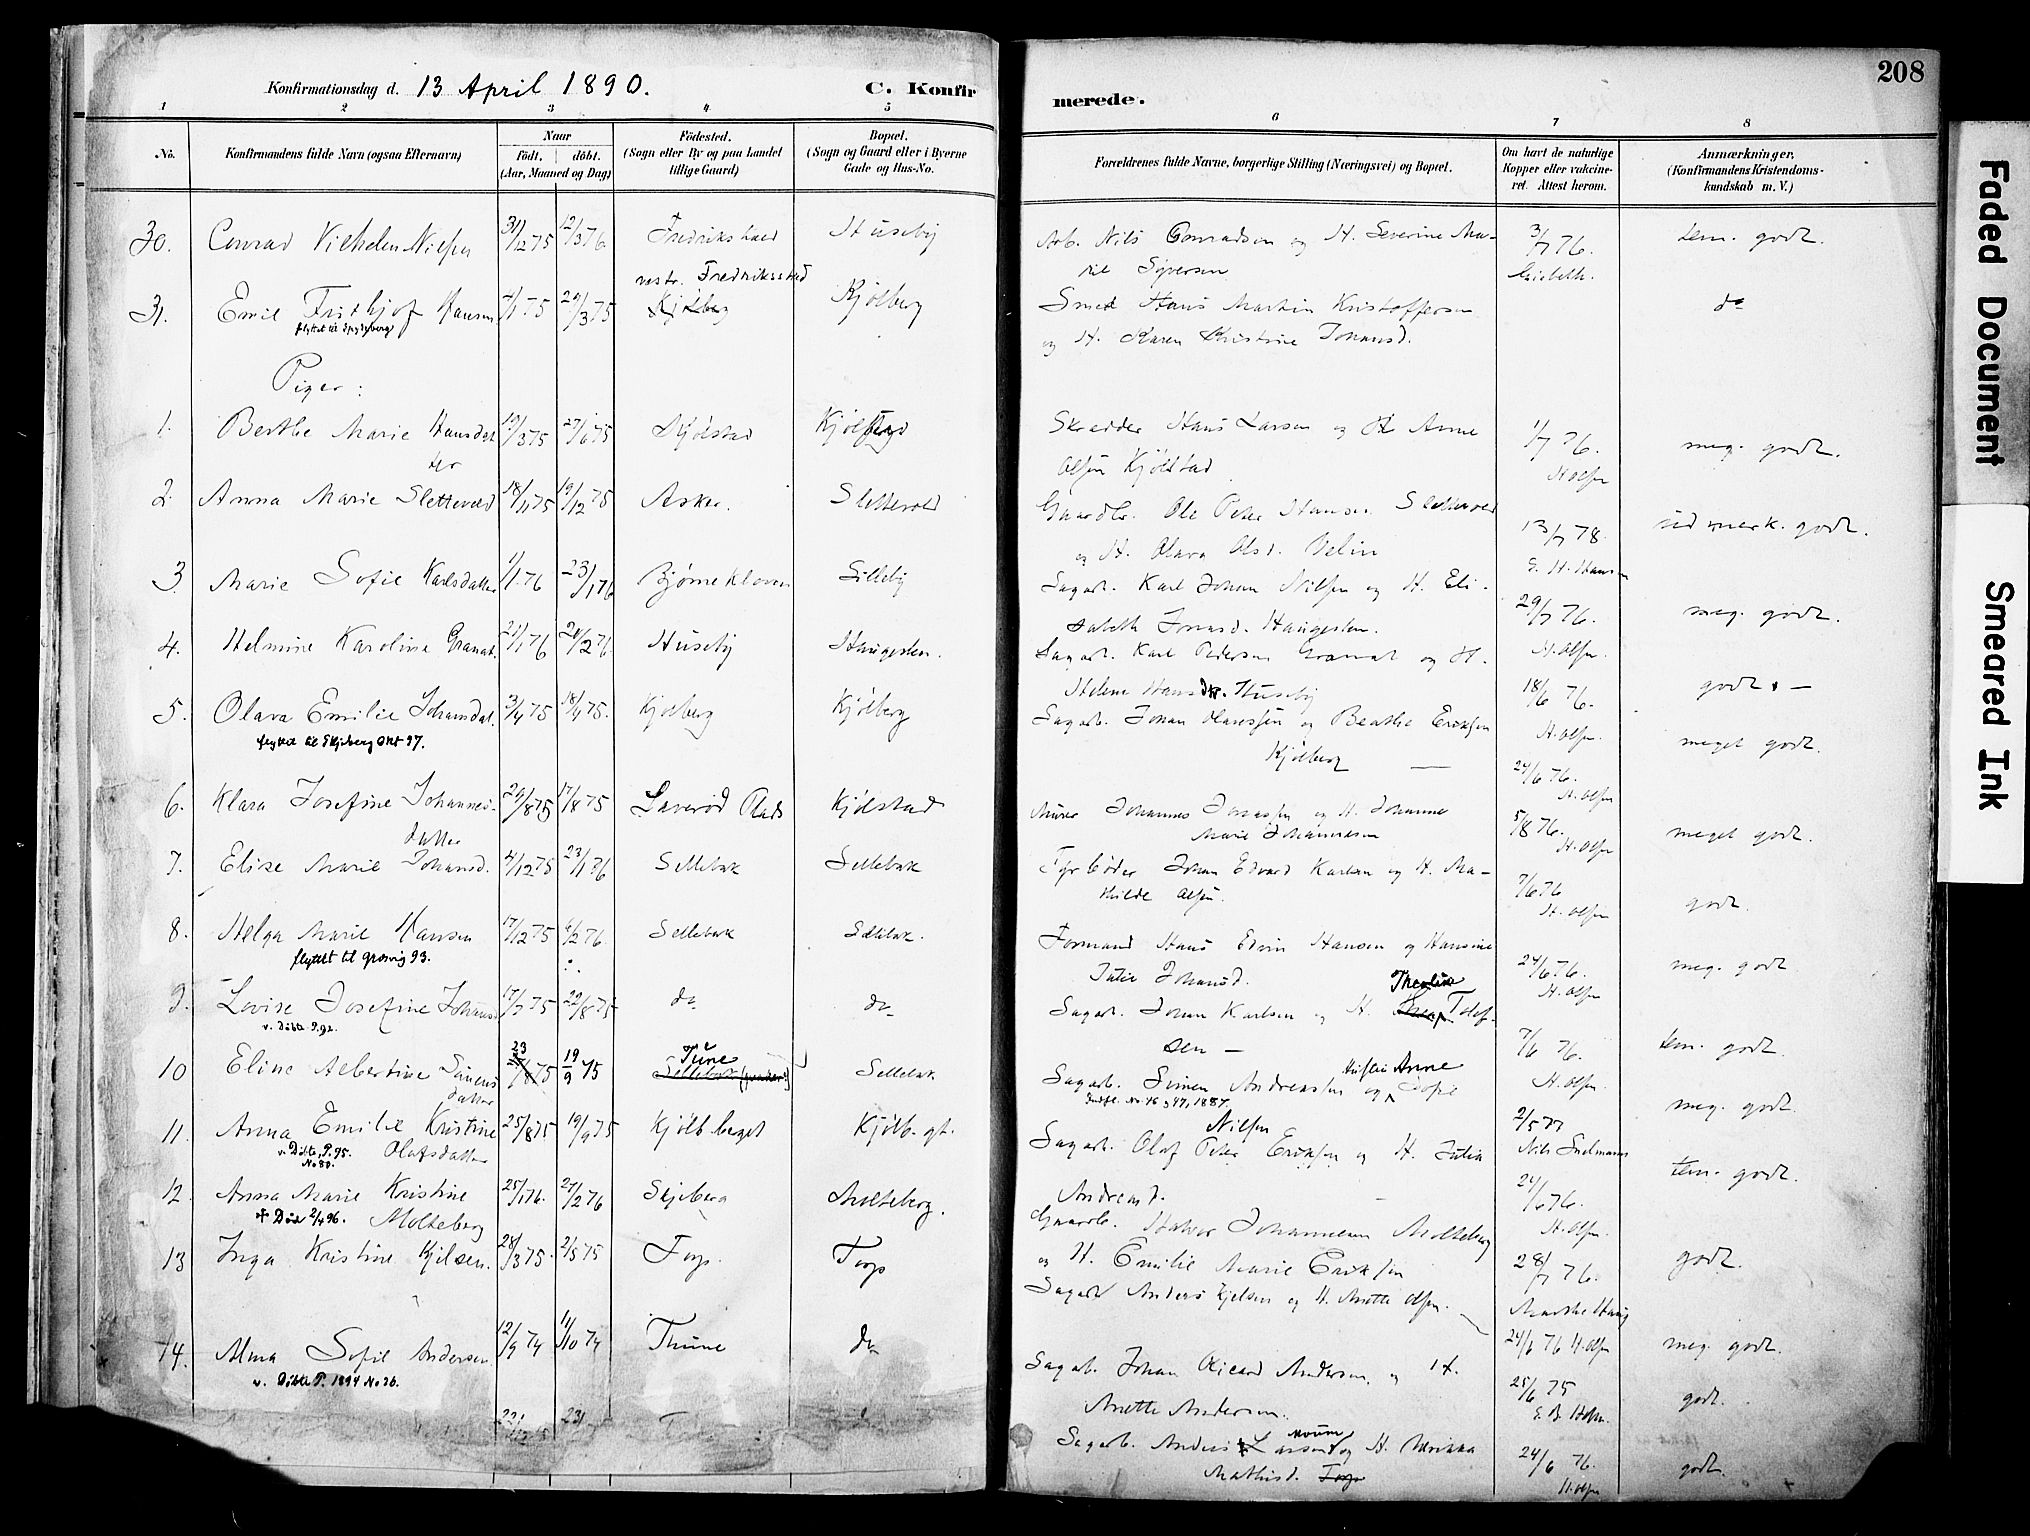 Konfirmationsdag d. 13 April 1890. C. Konfirmerede. 208
1 2 3 4 5 6 7 8
No. Konfirmandens fulde Navn (ogsaa Efternavn) Naar født. døbt. (Aar, Maaned og Dag) Fødested. (Sogn eller By og paa Landet tillige Gaard) Bopæl. (Sogn og Gaard eller i Byerne Gade og Hus-No.
Forældrenes fulde Navne, borgerlige Stilling (Næringsvei) og Bopæl. Om havt de naturlige Kopper eller vakcineret. Attest herom. Anmærkninger. (Konfirmandens Kristendomskundskab m. V.)
30. Conrad Vilhelm Nilsen 31/12 75 12/3 76 Fredrikstad Huseby Arb. Nils Conradsen og H. Severine Ma- 3/7 76. tem. godt.
Syversen
vestr. Fredriksstad
31. Emil Frithjof Hansen 4/1 75 29/3 75 Kjölberg Kjölberg Smed Hans Martin Kristoffersen do
flyttet til Spydeberg
og H. Karen Kristine Johansd.
Piger:
1. Berthe Marie Hansdatter 19/3 75 27/6 75 Kjölstad Skrædder Hans Larsen og H. Anne 1/7 76. meg. godt.
Olsen Kjölstad H Olsen
2. Anna Marie Slettevold 18/11 75 19/12 75 Asker. Slettevold Gaardbr. Ole Peter Hansen Slettevold 13/7 78. godt.
og H. Olava Olsd. E. H. Hansen
3. Marie Sofie Karlsdatter 1/1 76 23/1 76 Bjørnekloven Silleby Sagarb. Karl Johan Nilsen og H. Eli-
sabeth Haugesten. 29/7 76. meg. godt.
4. Helmine Karoline Granat. 21/1 76 20/2 76 Huseby Haugesten. Sagarb. Karl Pedersen Granat og H. H. Olsen.
Helene Hansdtr. Huseby 18/6 76. godt. —
5. Olava Emilie Johansdat. 3/4 75 18/4 75. Kjölberg Kjölberg Sagarb. Johan Olaussen og Beathe Eriksen H. Olsen.
flyttet til Skjeberg Okt 97. Kjölberg — meget godt.
24/6 76. H. Olsen
6. Klara Josefine Johannesdatter /8 75 Laverød Plads Kjölstad Murer Johannes og H. Johanne 5/8 76. meget godt.
Marie Johannesen H. Olsen
7. Elise Marie Johansd. 4/12 75 23/1 76 Sellebak Sellebak Fyrbøder Johan Edvard Karlsen og H. Ma-
thilde Olsen. 7/6 76 H. Olsen godt.
8. Helga Marie Hansen 17/12 75 6/2 76. Sellebak Sellebak. Formand Hans Edvin Hansen og Hansine
flyttet til Gresvig 93. Julie Johansd. 24/6 76. meg. godt
Thealine H. Olsen
9. Lovise Josefine Johans. 17/7 75 22/8 75 do do Sagarb. Johan Karlsen og H. Tolef-
v. Döbte P. 92. sen — 7/6 76. tem. godt.
23 19 Tune Anne
10 Eline Albertine Simensdatter /8 75 9 75 Sellebak Sellebak Sagarb. Simen Andreassen og Sofie H. Olsen.
Indfl. No. 46 & 47, 1887. meg. godt.
Nilsen 2/5 77
11. Anna Emilie Kristine 25/8 75 19/9 75 Kjölb. beget Kjölb. gt. Sagarb. Olaf Peter Eriksen og H. Julia Nils
v. Döbte, P. 95. No 80. Olafsdatter tem. godt.
Andreasd. 24/6 76.
12. Anna Marie Kristine 25/1 76. 27/2 76 Skjeberg Molteberg. Gaardb. Halvor Johannesen Molteberg H. Olsen.
✝ Död 2/4 96. Molteberg
og H. Emilie Marie Eriksen 28/7 76. godt.
13 Inga Kristine Kjelsen. 28/3 75. 2/5 75 Torp. Torp Sagarb Anders Kjelsen og H. Anette Olsen. Marthe Haug
24/6 76 H. Olsen meg. godt.
14. Alma Sofie Andersen 12/9 74 11/10 74 Thune do Sagarb. Johan Ricard Andersen og H.
v. Döbte P. 1894 No 26. Anette Andersen. 25/6 75 godt.
E. B. Holm.
Sagarb. Anders Larsen og H. Ulrikka 24/6 76. godt.
Mathisd. Torp H. Olsen
Faded Document
Smeared Ink